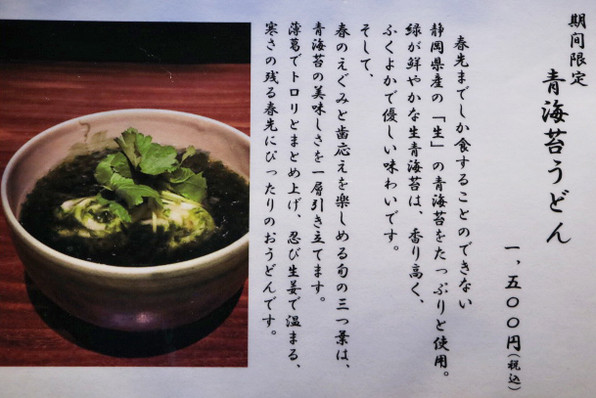 期間限定
青海苔うどん
一、五〇〇円(税込)
春先までしか食することのできない
静岡県産の「生」の青海苔をたっぷりと使用。
緑が鮮やかな生青海苔は、香り高く、
ふくよかで優しい味わいです。
そして、
春のえぐみと歯応えを楽しめる旬の三つ葉は、
青海苔の美味しさを一層引き立てます。
薄葛でトロリとまとめ上げ、忍び生姜で温まる、
寒さの残る春先にぴったりのおうどんです。